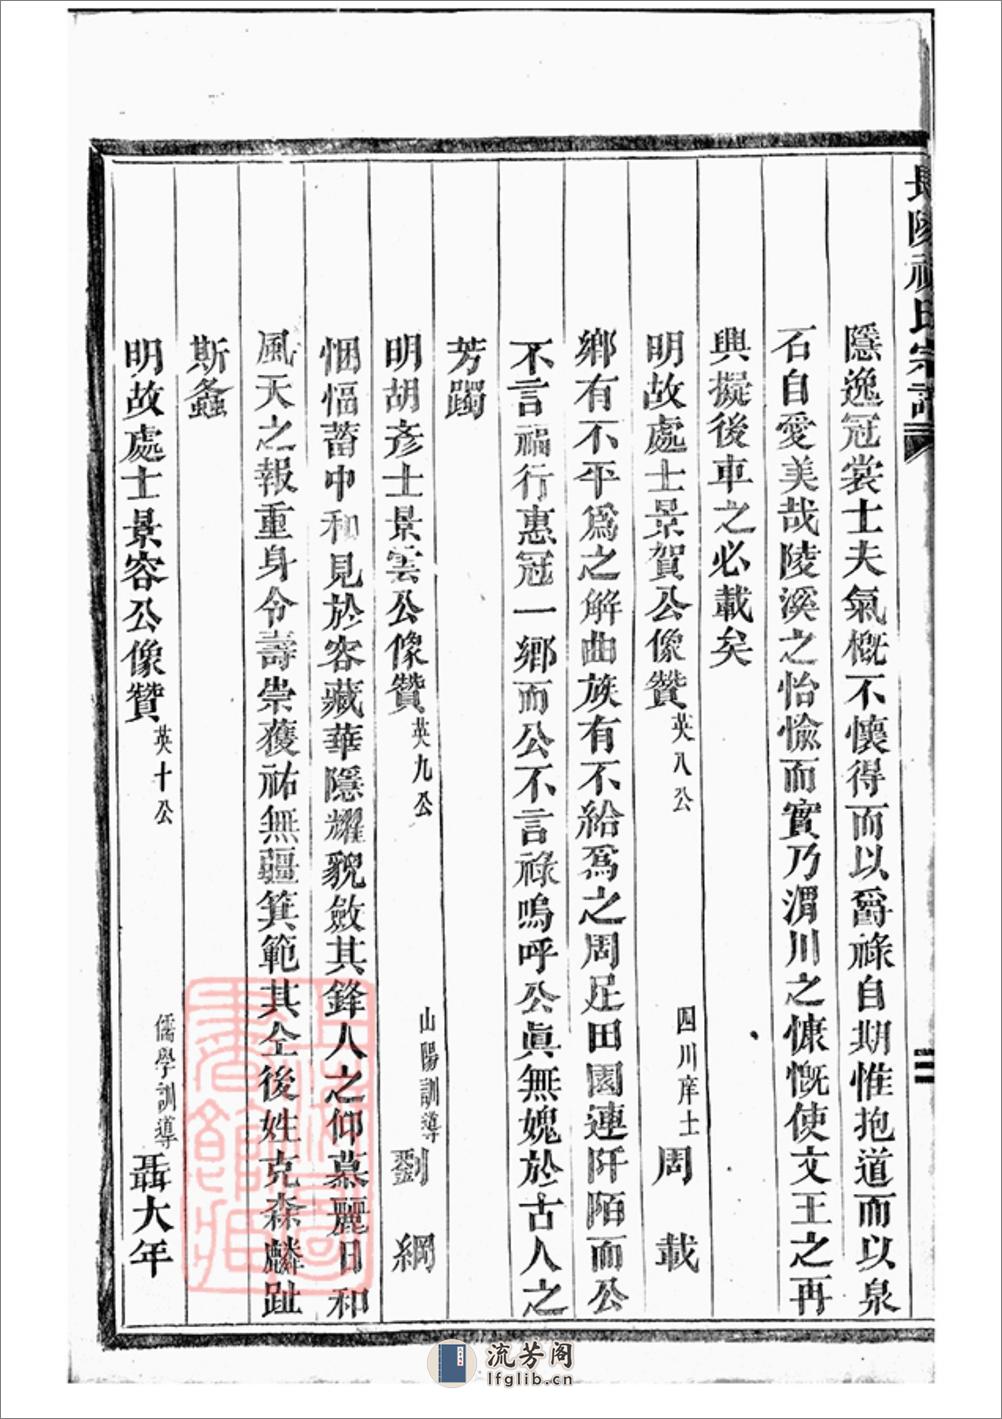 長陵祝氏宗譜
隱逸冠裳士夫氣槪不懷得而以爵祿自期惟抱道而以泉
石自愛美哉陵溪之怡愉而實乃渭川之慷慨使文王之再
興擬後車之必載矣
明故處士景賀公像贊 英八公 四川庠士 周 載
鄉有不平爲之解曲族有不給爲之周足田園連阡陌而公
不言福行惠冠一鄉而公不言祿嗚呼公眞無媿於古人之
芳躅
明胡彥士景雲公像贊 英九公 山陽訓導 劉 綱
悃愊蓄中和見於容藏華隱耀貌斂其鋒人之仰慕麗日和
風天之報重身令壽崇獲祐無疆箕範其全後姓克森麟趾
斯螽
明故處士景容公像贊 英十公 儒學訓導 聶大年
流芳阁
lfglib.cn